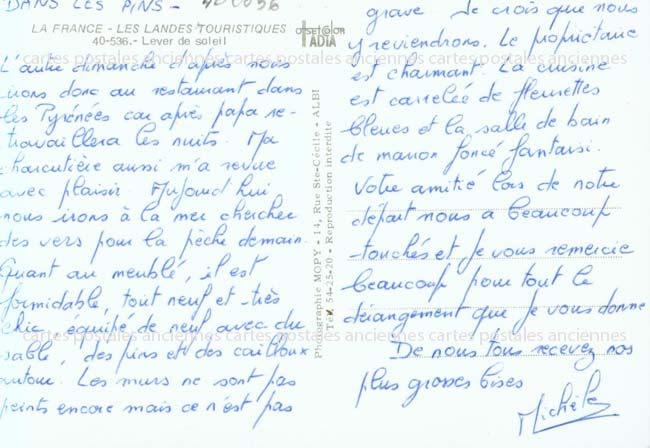 DANS LES PINS - 400036
LA FRANCE - LES LANDES TOURISTIQUES
40-536.- Lever de soleil
offset color
IADIA
L'autre dimanche d'après nous
irons donc au restaurant dans
les Pyrénées car après papa re-
travaillera les nuits. Ma
charcutière aussi m'a revue
avec plaisir. Aujourd'hui
nous irons à la mer chercher
des vers pour la pèche demain.
Quant au meublé, il est
formidable, tout neuf et très
chic, équipé de neuf avec du
sable, des pins et des cailloux
autour. Les murs ne sont pas
peints encore mais ce n'est pas
Photographie MOPY - 14, Rue Ste-Cécile - ALBI
Tél. 54-25-20 - Reproduction interdite
grave. Je crois que nous
y reviendrons. Le propriétaire
est charmant. La cuisine
est carrelée de fleurettes
bleues et la salle de bain
de marron foncé fantaisi.
Votre amitié lors de notre
départ nous a beaucoup
touchés et je vous remercie
beaucoup pour tout le
dérangement que je vous donne
De nous tous recevez nos
plus grosses bises
Michèle
cartes postales anciennes cartes postales anciennes cartes postales anciennes
cartes postales anciennes cartes postales anciennes cartes postales anciennes